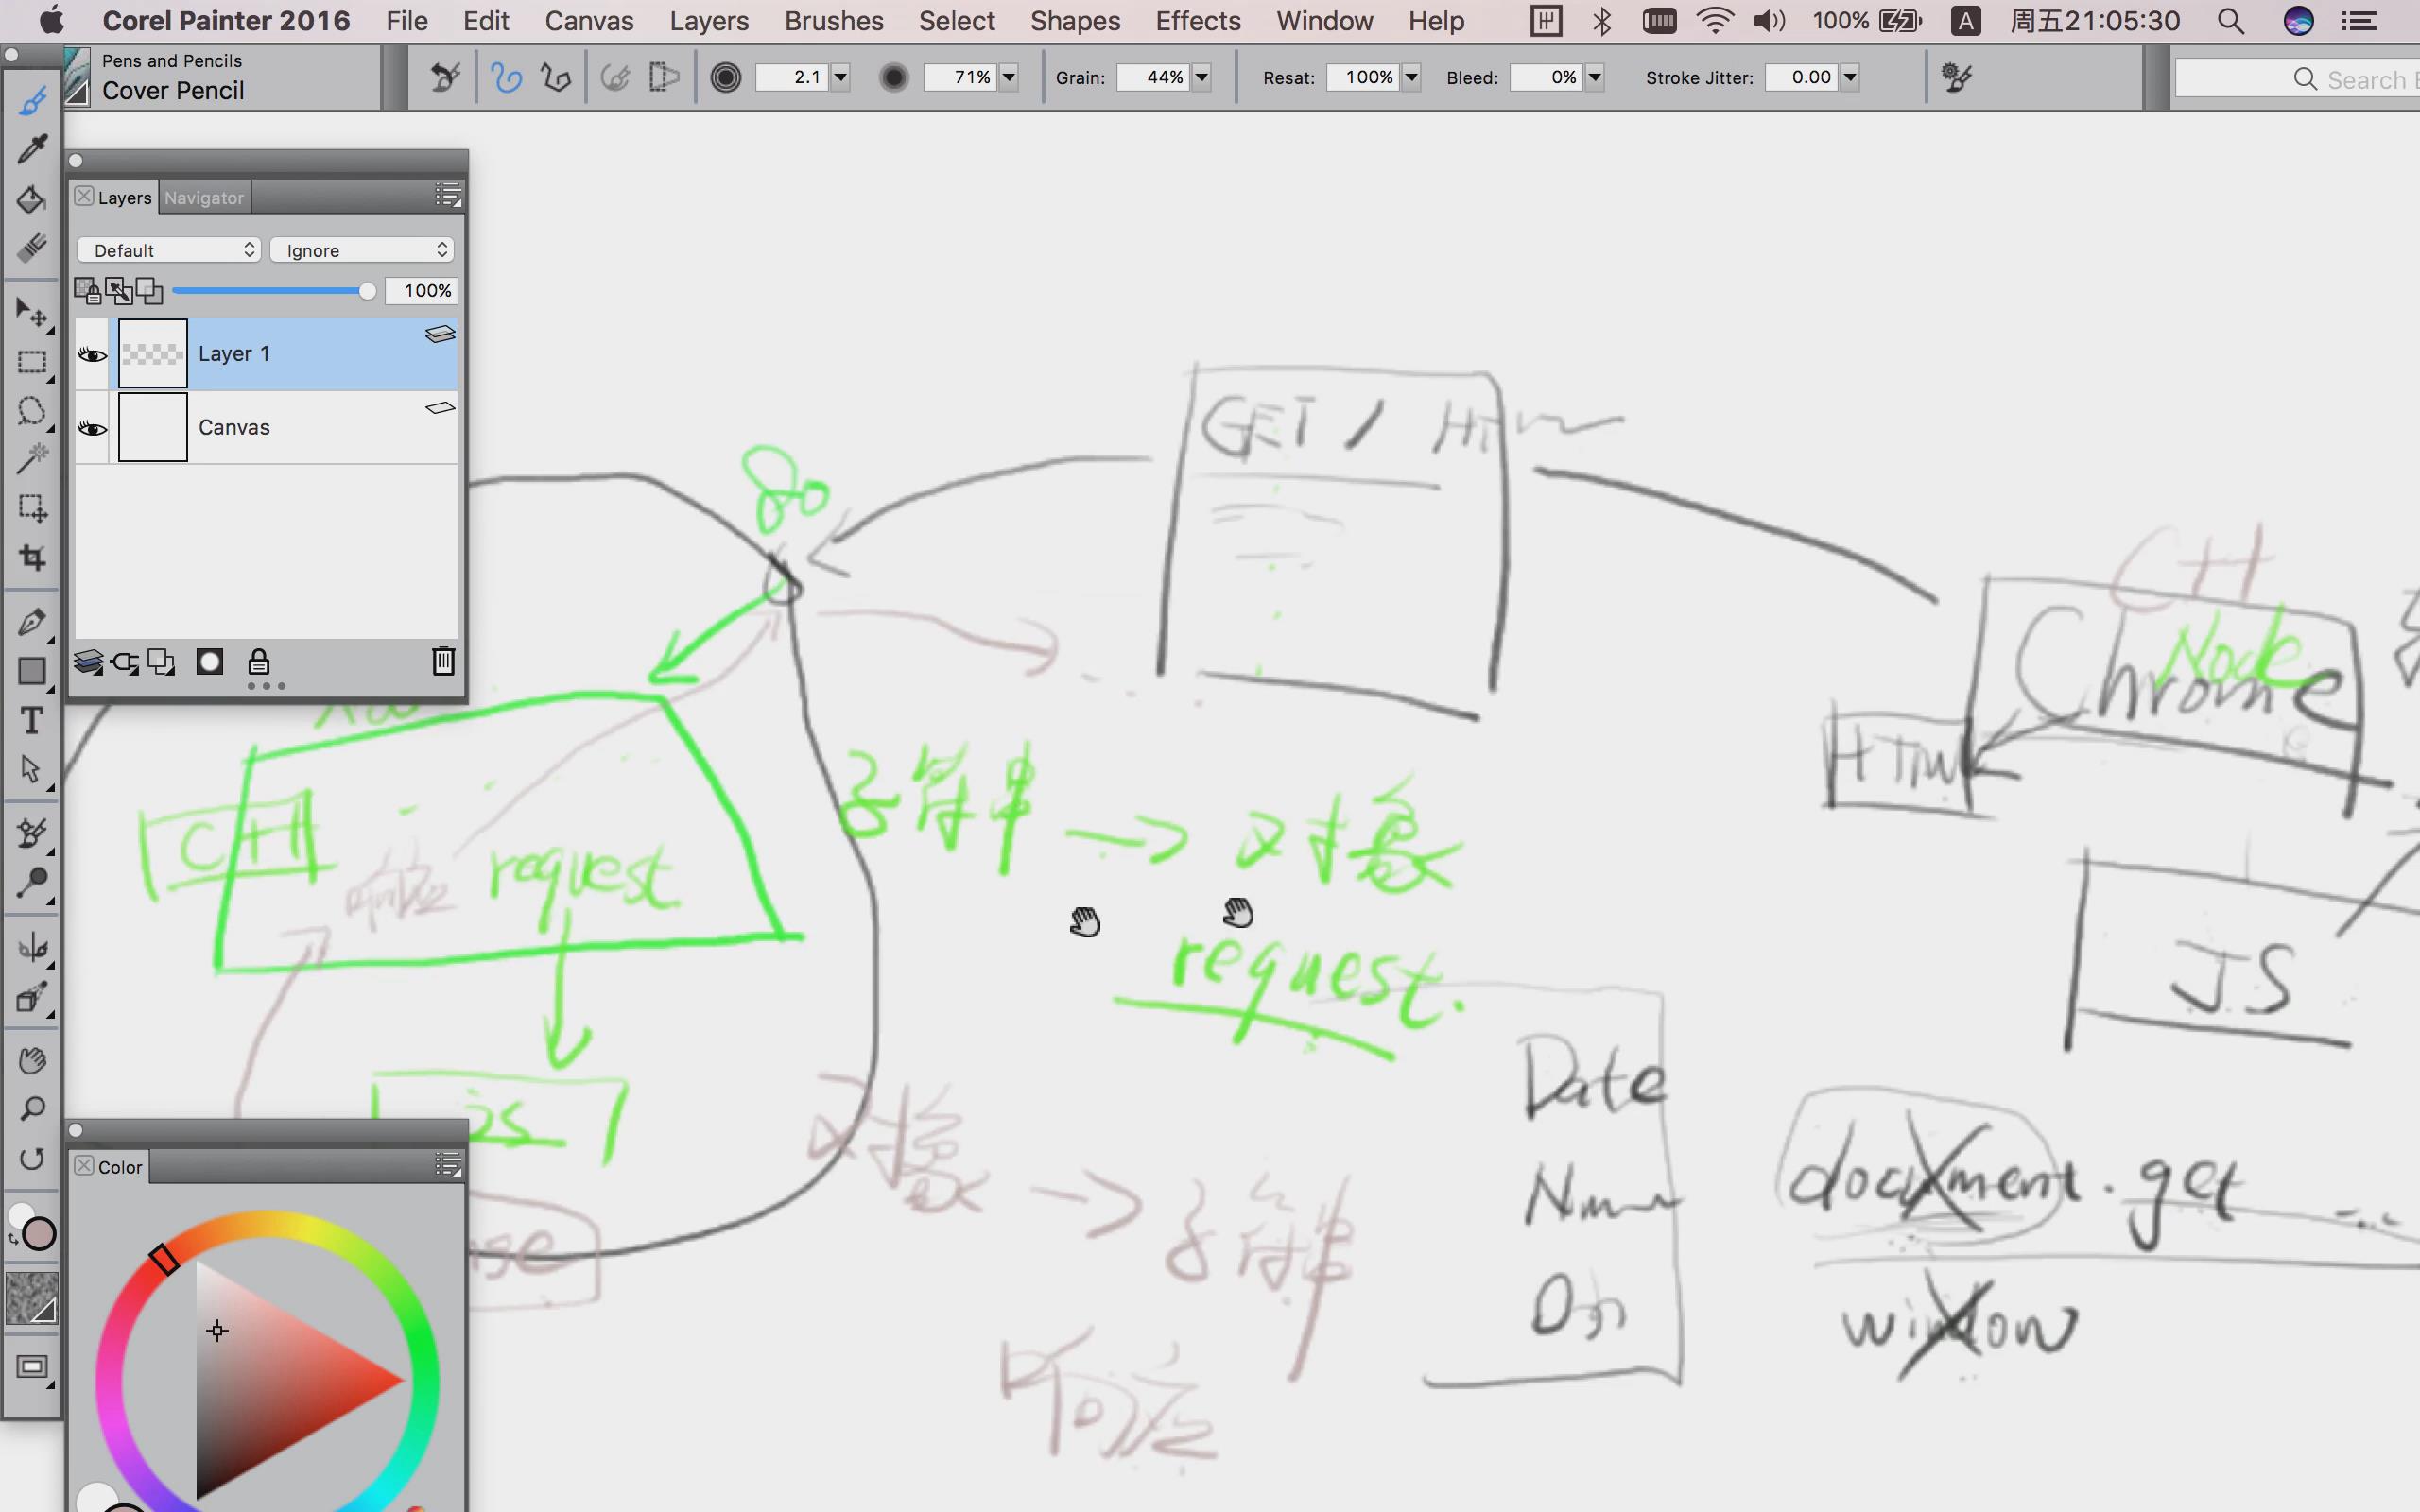 Corel Painter 2016 File Edit Canvas Layers Brushes Select Shapes Effects Window Help 100% A 周五21:05:30
Pens and Pencils
Cover Pencil
2.1 71% Grain: 44% Resat: 100% Bleed: 0% Stroke Jitter: 0.00 Search
Layers Navigator
Default Ignore
100%
Layer 1
Canvas
80
GET /
C++
Node
Chrome
字符串 -> 对象
C++
响应 request
request.
JS
js
Date
对象 -> 字符串
document.get
window
响应
Color